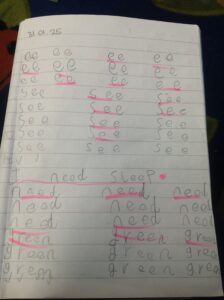 ee ee ee ee
ee ee ee ee
ee ee ee ee
see see see
see see see
see see see
see see see
see see see
see see see
need sleep
need need need
need need need
need need need
green green green
green green green
green green green